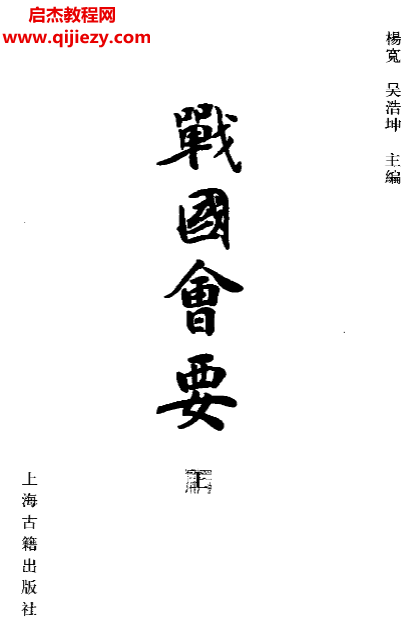 启杰教程网
www.qijiezy.com
楊寬 吴浩坤 主編
戰國會要
上
上海古籍出版社